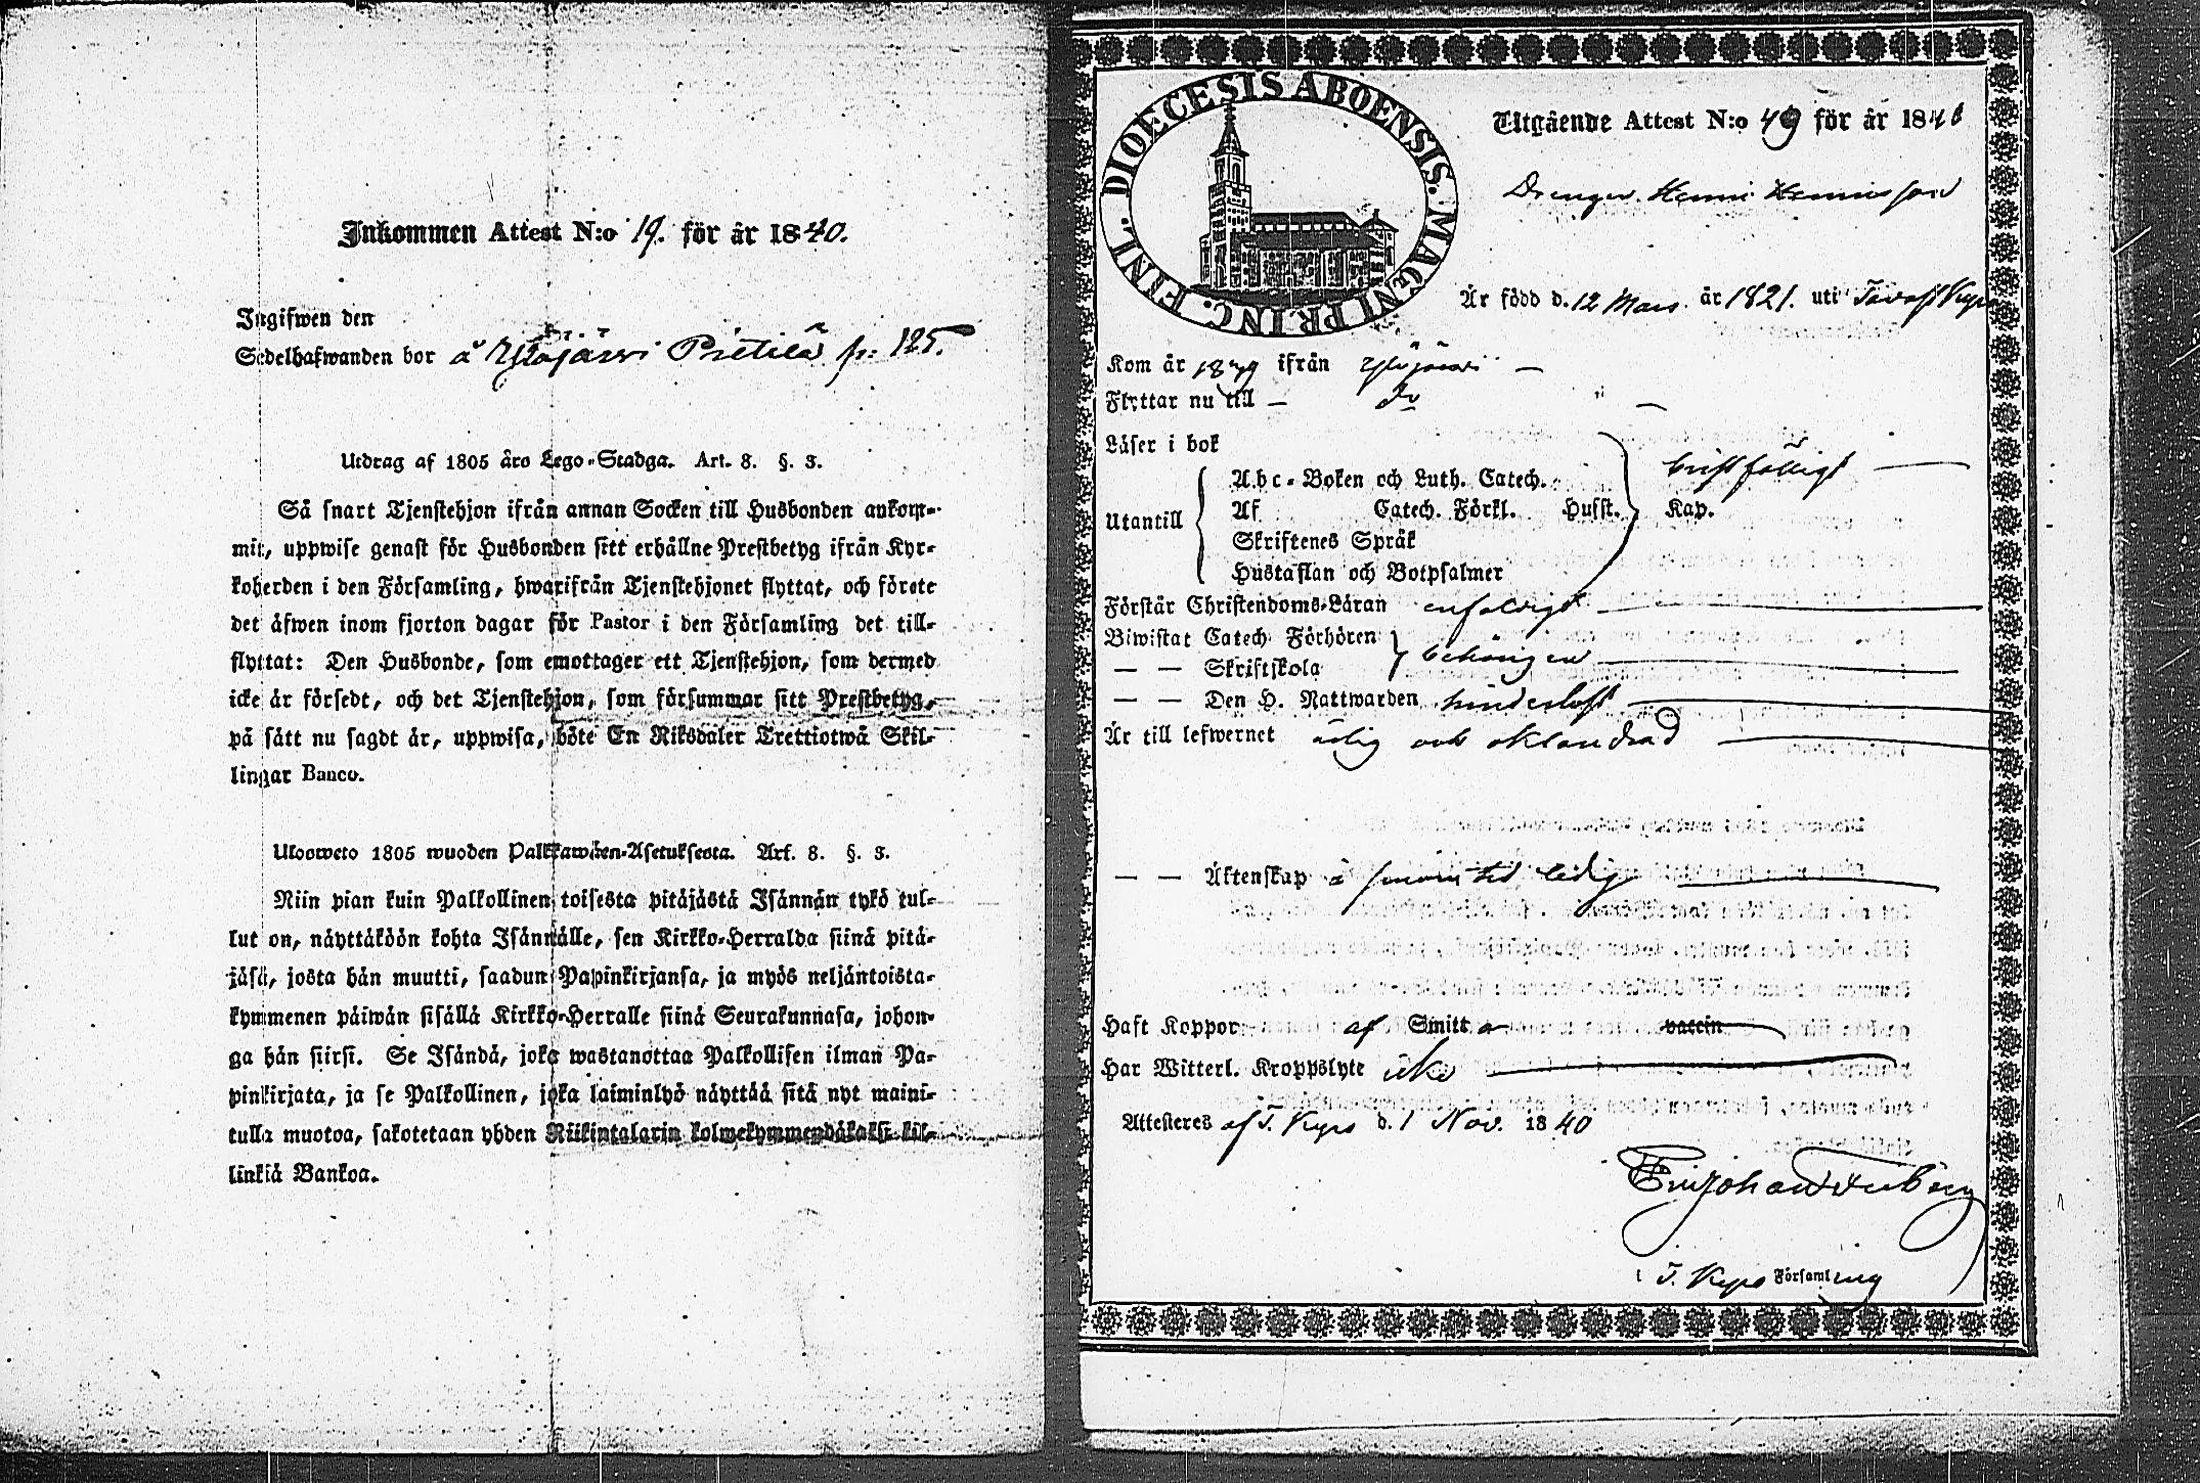 Inkommen Attest N:o 19. för år 1840.
Ingifwen den
Sedelhafwanden bor å Ylöjärwi Pietilä p: 125.
Utdrag af 1805 års Lego-Stadga. Art. 8. §. 3.
Så snart Tjenstehjon ifrån annan Socken till Husbonden ankom-
mit, uppwise genast för Husbonden sitt erhållne Prestbetyg ifrån Kyr-
koherden i den Församling, hwarifrån Tjenstehjonet flyttat, och förete
det äfwen inom fjorton dagar för Pastor i den Församling det till-
flyttat: Den Husbonde, som emottager ett Tjenstehjon, som dermed
icke är försedt, och det Tjenstehjon, som försummar sitt Prestbetyg,
på sätt nu sagdt är, uppwisa, böte En Riksdaler Trettiotwå Skil-
lingar Banco.
Ulosweto 1805 wuoden Palkkawäen-Asetuksesta. Art. 8. §. 3.
Niin pian kuin Palkollinen toisesta pitäjästä Isännän tykö tul-
lut on, näyttäköön kohta Isännälle, sen Kirkko-Herralda siinä pitä-
jäsä, josta hän muutti, saadun Papinkirjansa, ja myös neljäntoista-
kymmenen päiwän sisällä Kirkko-Herralle siinä Seurakunnasa, johon-
ga hän siirsi. Se Isändä, joka wastanottaa Palkollisen ilman Pa-
pinkirjata, ja se Palkollinen, joka laiminlyö näyttää sitä nyt maini-
tulla muotoa, sakotetaan yhden Riikintalarin kolmekymmendäkaksi kil-
linkiä Bankoa.
DIOECESIS ABOENSIS. MAGNI PRINC. FINL.
Utgående Attest N:o 49 för år 1840
Drengen Henric Henricsson
Är född d. 12 Mars. år 1821. uti Tavast Kyro
Kom år 1839 ifrån Ylöjärwi —
Flyttar nu till — do —
Läser i bok
Utantill
Abc-Boken och Luth. Catech.
Af Catech. Förkl. Husst. Kap.
Skriftenes Språk
Hustaflan och Botpsalmer
bristfälligt —
Förstår Christendoms-Läran enfaldigt —
Biwistat Catech Förhören
— — Skriftskola
behörigen —
— — Den H. Nattwarden hinderlöst —
Är till lefwernet ärlig och oklandrad —
— — Äktenskap å från tid ledig —
Haft Koppor af Smitta vaccin
Har Witterl. Kroppslyte icke —
Attesteres af T. Kyro d. 1 Nov. 1840
i T. Kyro Församling